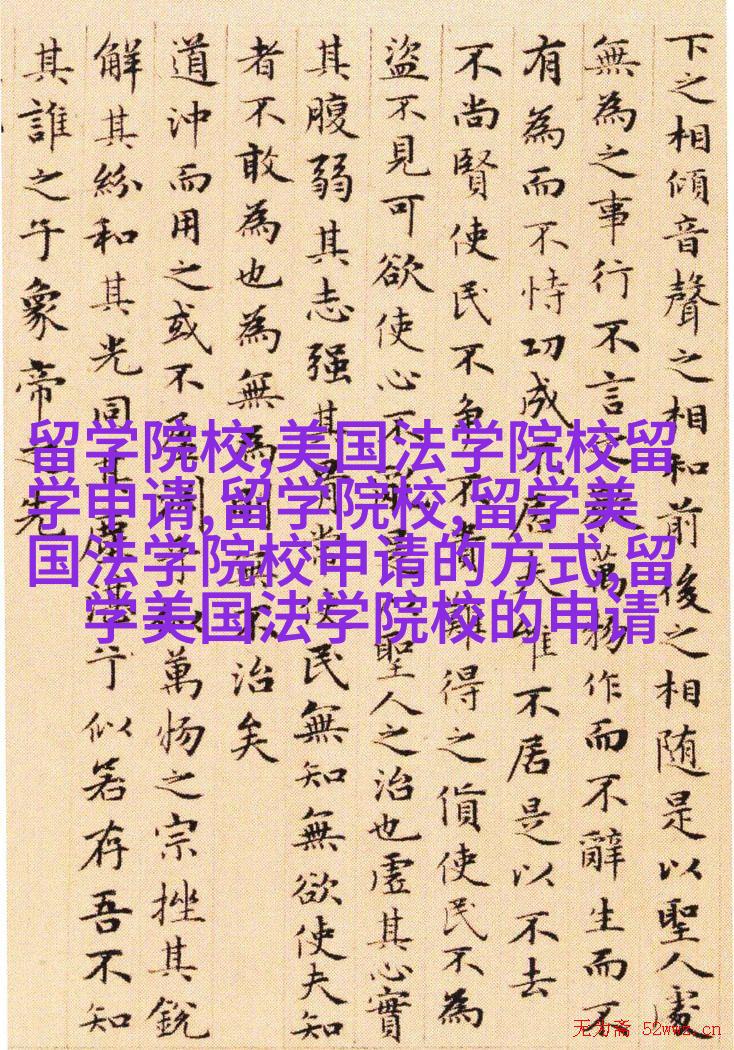 下之相傾音聲之相和前後之相随是以聖人處
無為之事行不言之教萬物作而不辭生而不
有為而不恃功成不居夫唯不居是以不去
不尚賢使民不争不貴難得之貨使民不為
盜不見可欲使心不亂是以聖人之治也虛其心實
其腹弱其志强其骨常使民無知無欲使夫知
者不敢為也為無為則無不治矣
道沖而用之或不盈淵乎似萬物之宗挫其銳
解其紛和其光同其塵湛兮似若存吾不知
其誰之子象帝之先
留学院校,美国法学院校留
学申请,留学院校,留学美
国法学院校申请的方式,留
学美国法学院校的申请
无为斋 52wwz.cn